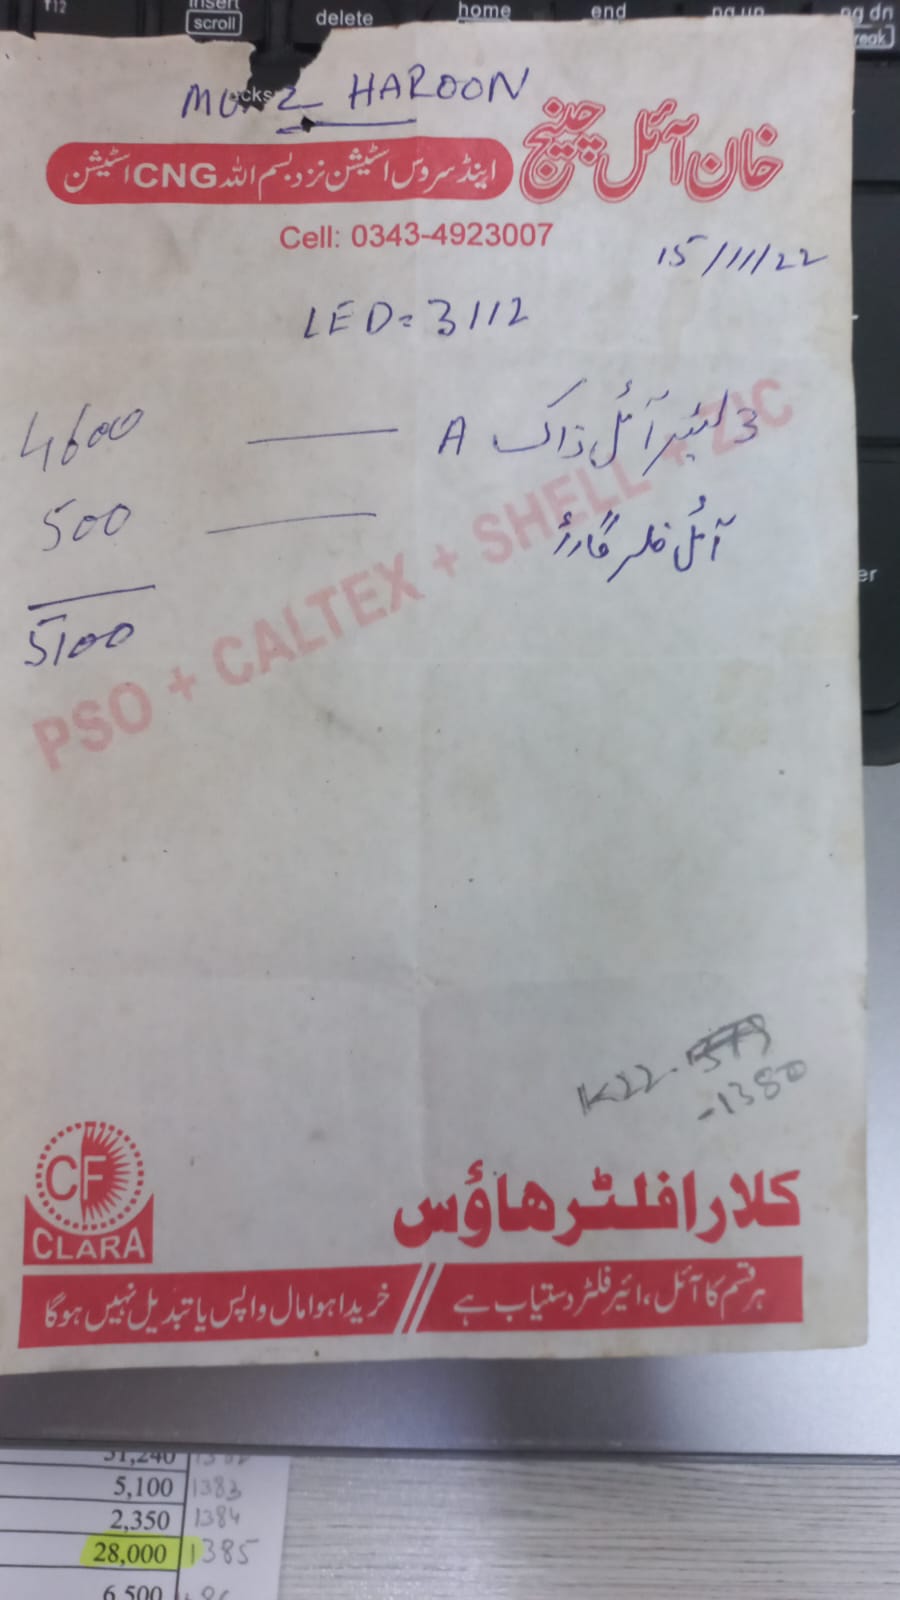 insert
scroll
delete
home
end
HAROON
خان آئل چینج
اینڈ سروس اسٹیشن نزد بسم اللہ CNG اسٹیشن
Cell: 0343-4923007
15/11/22
LED = 3112
3 لیٹر آئل زاک A — 4600
آئل فلٹر گارڈ — 500
5100
PSO + CALTEX + SHELL + ZIC
K22-
-1380
CF
CLARA
کلارا فلٹر ھاؤس
ہر قسم کا آئل، ائیر فلٹر دستیاب ہے // خریدا ہوا مال واپس یا تبدیل نہیں ہوگا
31,240
5,100 1383
2,350 1384
28,000 1385
6,500